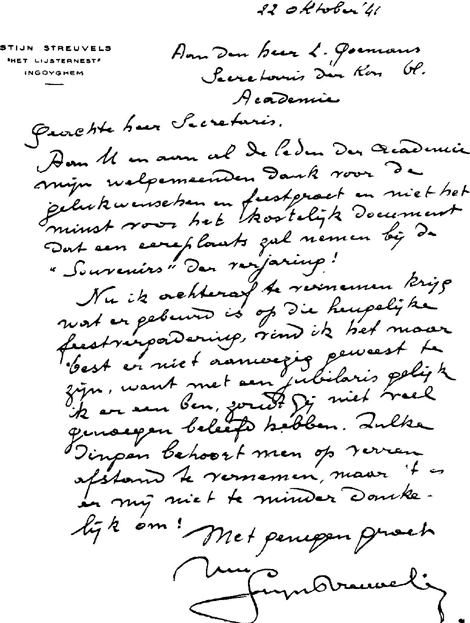 22 oktober '41
STIJN STREUVELS
"HET LIJSTERNEST"
INGOYGHEM
Aan den heer L. Goemans
Secretaris der Kon Vl.
Academie
Geachte heer Secretaris.
Aan U en aan al de leden der Academie
mijn welgemeenden dank voor de
gelukwenschen en feestgroet en niet het
minst voor het kostelijk document
dat een eereplaats zal nemen bij de
"Souvenirs" der verjaring!
Nu ik achteraf te vernemen krijg
wat er gebeurd is op die heugelijke
feestvergadering, vind ik het maar
best er niet aanwezig geweest te
zijn, want met een jubilaris gelijk
ik er een ben, zoudt Gij niet veel
genoegen beleefd hebben. Zulke
dingen behoort men op verren
afstand te vernemen, maar 't is
er mij niet te minder danke-
lijk om!
Met genegen groet
Uw
Stijn Streuvels